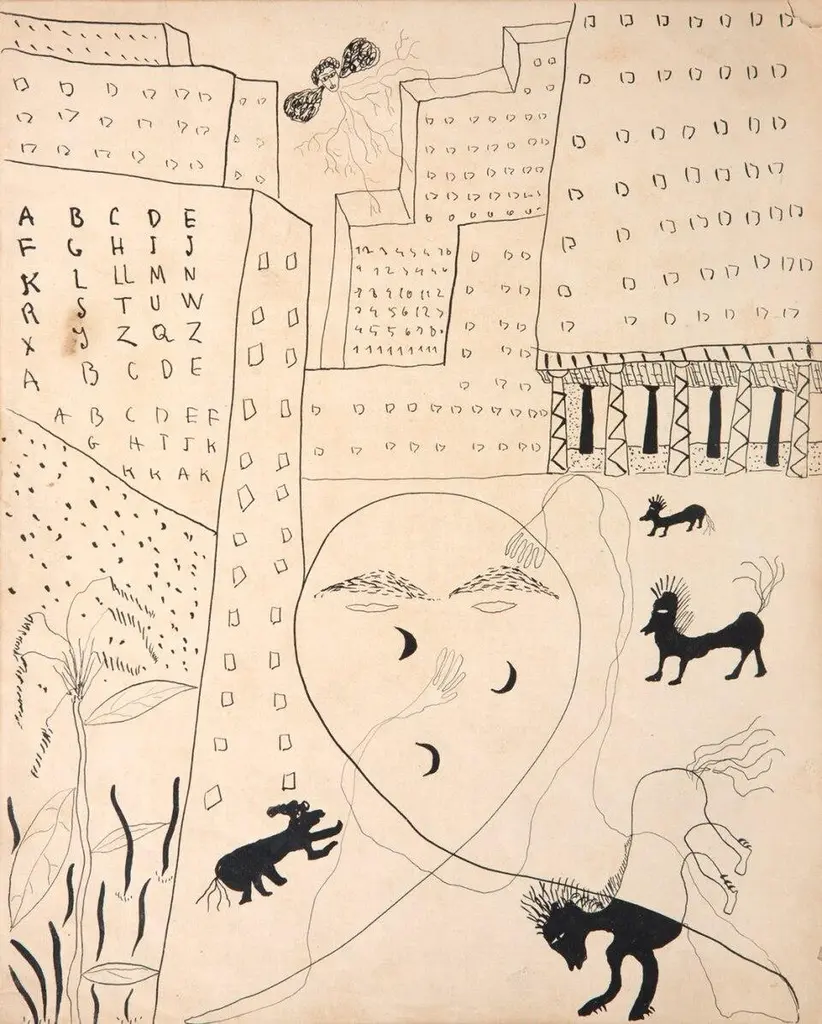 A B C D E
F G H I J
K L LL M N
R S T U W
X Y Z Q Z
A B C D E
A B C D E F
G H I J K
K K A K
1 2 3 4 5 6 7 8
9 1 2 3 4 5 6
7 8 9 10 11 2
3 4 5 6 1 2 3
4 5 5 6 7 8 0
1 1 1 1 1 1 1 1 1 1